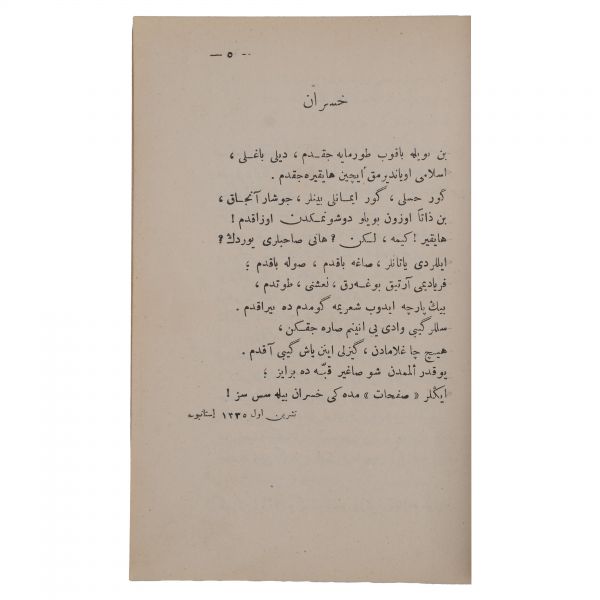 — ٥ —
خسران
بن بويله باقوب طورمايه جقدم ، ديلى باغلى ،
اسلامى اوياندير مق ايچين هايقيره جقدم .
كور حسلى ، كور ايمانلى بينلر ، جوشار آنجاق ،
بن ذاتاً اوزون بويلو دوشونمكدن اوزاقدم !
هايقير ! كيمه ، لكن ؟ هانى صاحبلرى يوردڭ ؟
ايللردى ياتانلر ، صاغه باقدم ، صوله باقدم ؛
فريادیمى آرتيق بوغه رق ، نعشنى ، طوتدم ،
بيڭ پارچه ايدوب شعريمه گومدم ده بيراقدم .
سللر گيبى وادى يى انينم صاره جقكن ،
هيچ چاغلامادن ، گيزلى اينن ياش گيبى آقدم .
يوقدر المدن شو صاغير قبه ده برايز ؛
ايڭلر « صفحات » مده كى خسران بيله سس سز !
تشرين اول ١٣٣٥ استانبول